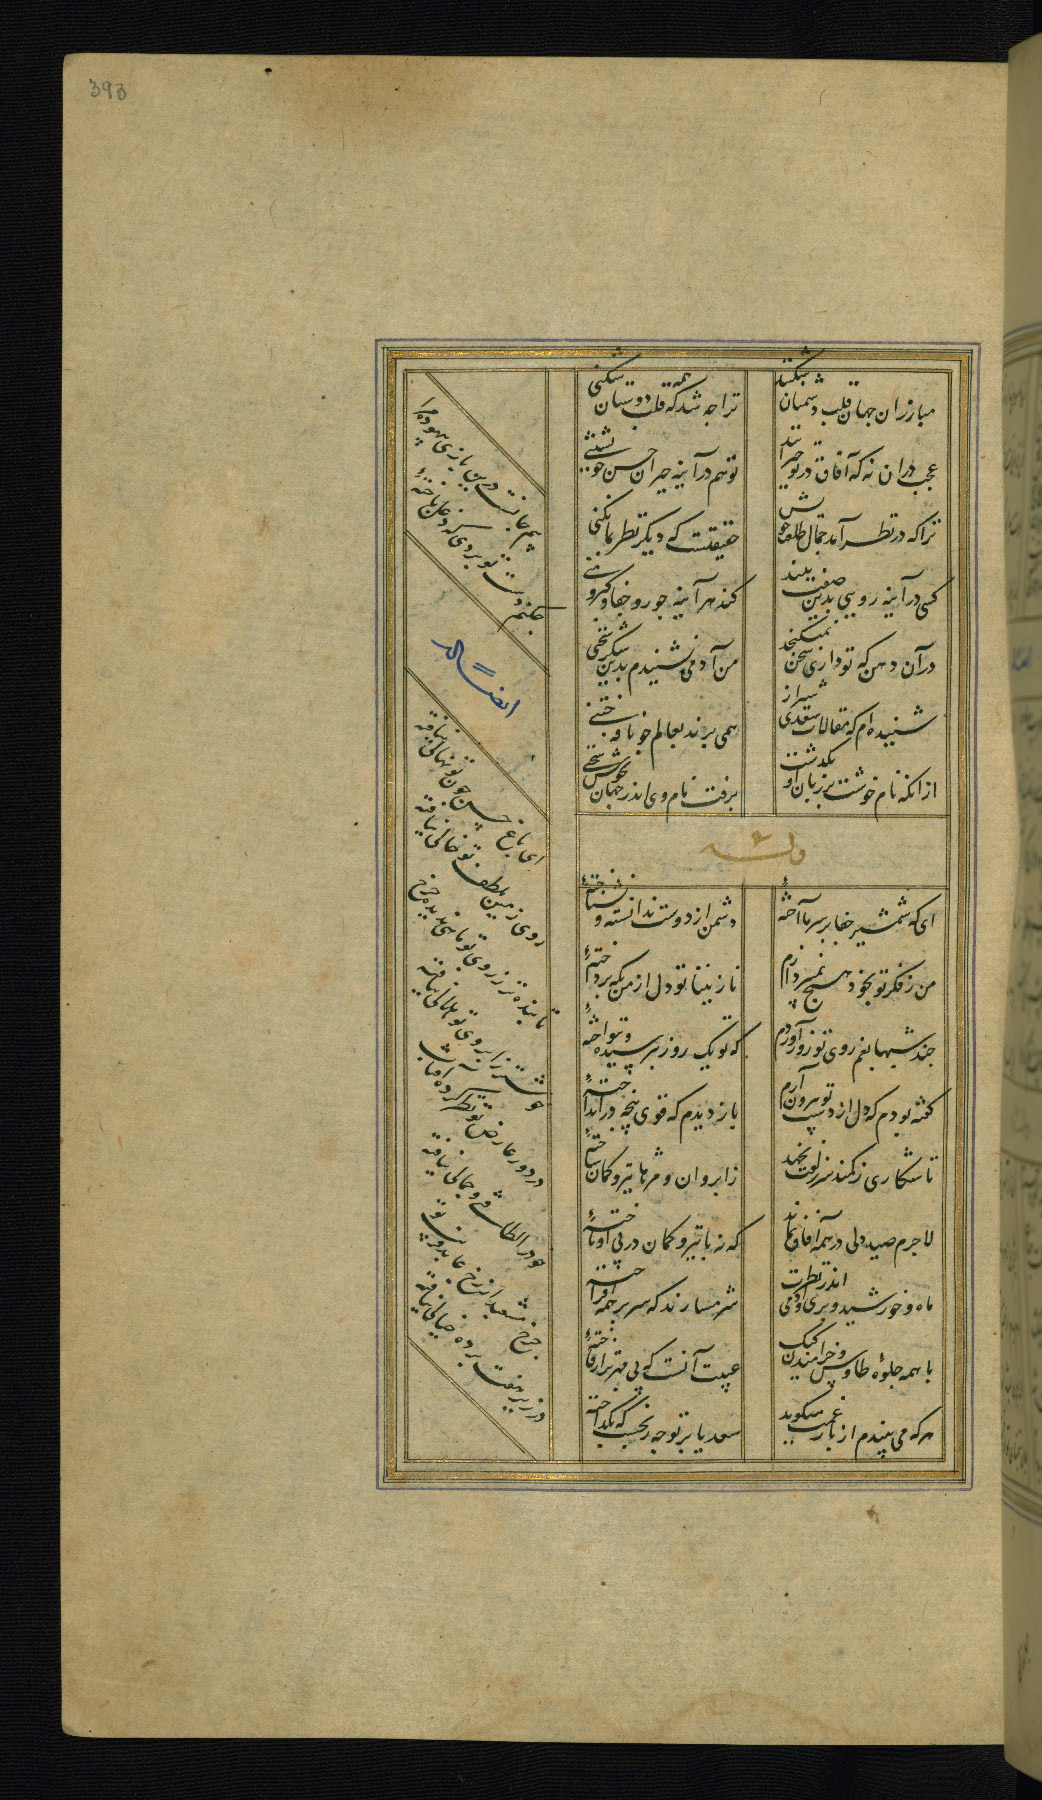 393
مبارزان جهان قلب دشمنان شکنند
تراچه شد که همه قلب دوستان شکنی
عجب دران نه که آفاق در تو حیرانند
تو هم در آینه حیران حسن خویشتنی
ترا که در نظر آمد جمال طلعت خویش
حقیقتست که دیگر نظر بما نکنی
کسی در آینه رویی بدین صفت بیند
کند هر آینه جور و جفا و کبر و منی
در آن دهن که تو داری سخن نمیگنجد
من آدمی نشنیدم بدین شکر سخنی
شنیده ام که مقالات سعدی شیراز
همی برند بعالم چو نافه ختنی
از انکه نام خوشت بر زبان او بگذشت
برفت نام وی اندر جهان بخوش سخنی
وله
ای که شمشیر جفا بر سر ما آخته
دشمن از دوست ندانسته و نشناخته
من ز فکر تو بخود هیچ نمی پردازم
نازنینا تو دل از من بکه پرداخته
چند شبها بغم روی تو روز آوردم
که تو یک روز نپرسیده و ننواخته
گفته بودم که دل از دست تو بیرون آرم
باز دیدم که قوی پنجه در انداخته
تا شکاری ز کمند سر زلفت نجهد
ز ابروان و مژه ها تیر و کمان ساخته
لاجرم صید دلی در همه آفاق نماند
که نه با تیر و کمان در پی او تاخته
ماه و خورشید و پری و آدمی اندر نظرت
شرمسارند که سر بر همه افراخته
با همه جلوه طاوس و خرامیدن کبک
عیبت آنست که بی مهرتر از فاخته
هر که می بینم از بار غمت میگوید
سعدیا بر تو چه رنجست که بگداخته
بیم جانست درین بازی بیهوده مرا
چکنم دست تو بردی که دغل باخته
ایضاله
ای باغ حسن چون تو نهالی نیافته
روی زمین بلطف تو خالی نیافته
تابنده تر ز روی تو ماهی ندیده چرخ
خوشتر ز ابروی تو هلالی نیافته
در دور عارض تو نظر کرده آفتاب
خود را لطافتی و جمالی نیافته
چرخ مشعبد از رخ